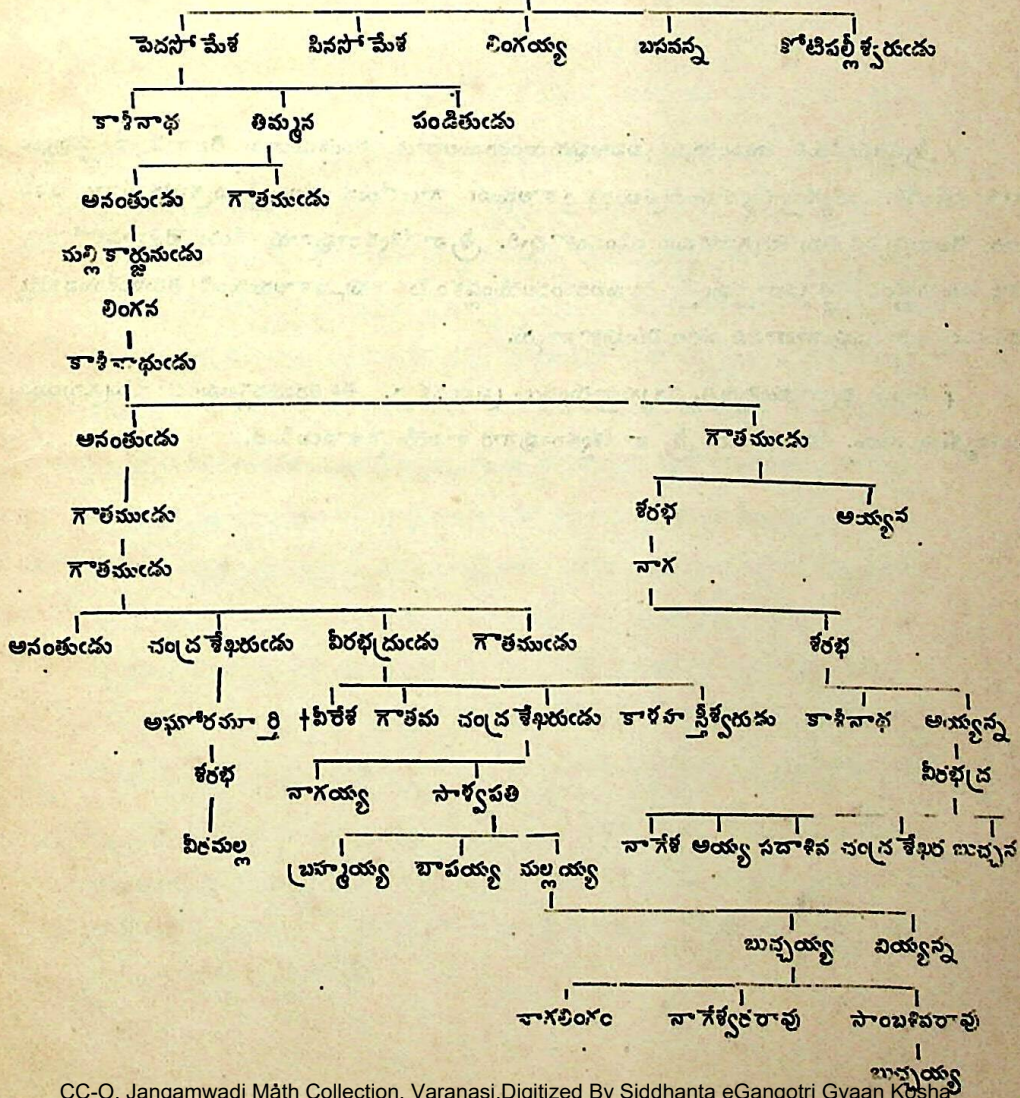 పెదసోమేశ సినసోమేశ లింగయ్య బసవన్న కోటిపల్లీశ్వరుఁడు
కాశీనాథ తిమ్మన పండితుఁడు
అనంతుఁడు గౌతముఁడు
మల్లికార్జునుఁడు
లింగన
కాశీనాథుఁడు
అనంతుఁడు గౌతముఁడు
గౌతముఁడు శరభ అయ్యన
గౌతముఁడు నాగ
అనంతుఁడు చంద్రశేఖరుఁడు వీరభద్రుఁడు గౌతముఁడు శరభ
అఘోరమూర్తి †వీరేశ గౌతమ చంద్రశేఖరుఁడు కాళహస్తీశ్వరుఁడు కాశీనాథ అయ్యన్న
శరభ నాగయ్య సార్వపతి వీరభద్ర
వీరమల్ల బ్రహ్మయ్య బాపయ్య మల్లయ్య నాగేశ అయ్య సదాశివ చంద్రశేఖర బుచ్చన
బుచ్చయ్య వియ్యన్న
నాగలింగం నాగేశ్వరరావు సాంబశివరావు
బుచ్చయ్య
CC-O. Jangamwadi Math Collection, Varanasi.Digitized By Siddhanta eGangotri Gyaan Kosha